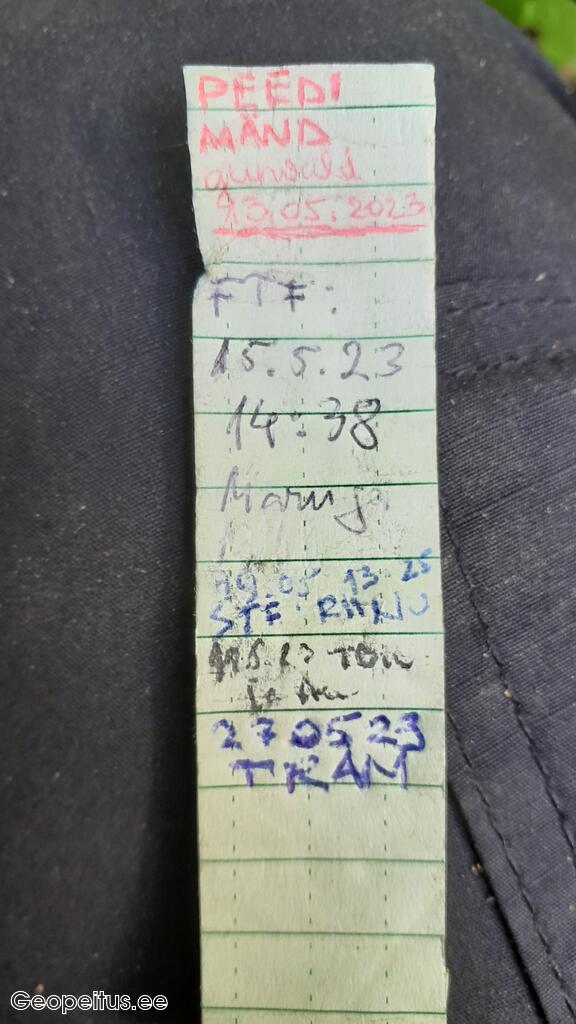 PEEDI
MÄND
gunvald
13.05.2023
FTF:
15.5.23
14:38
19.05 13 25
STF
270523
TRAM
Geopeitus.ee